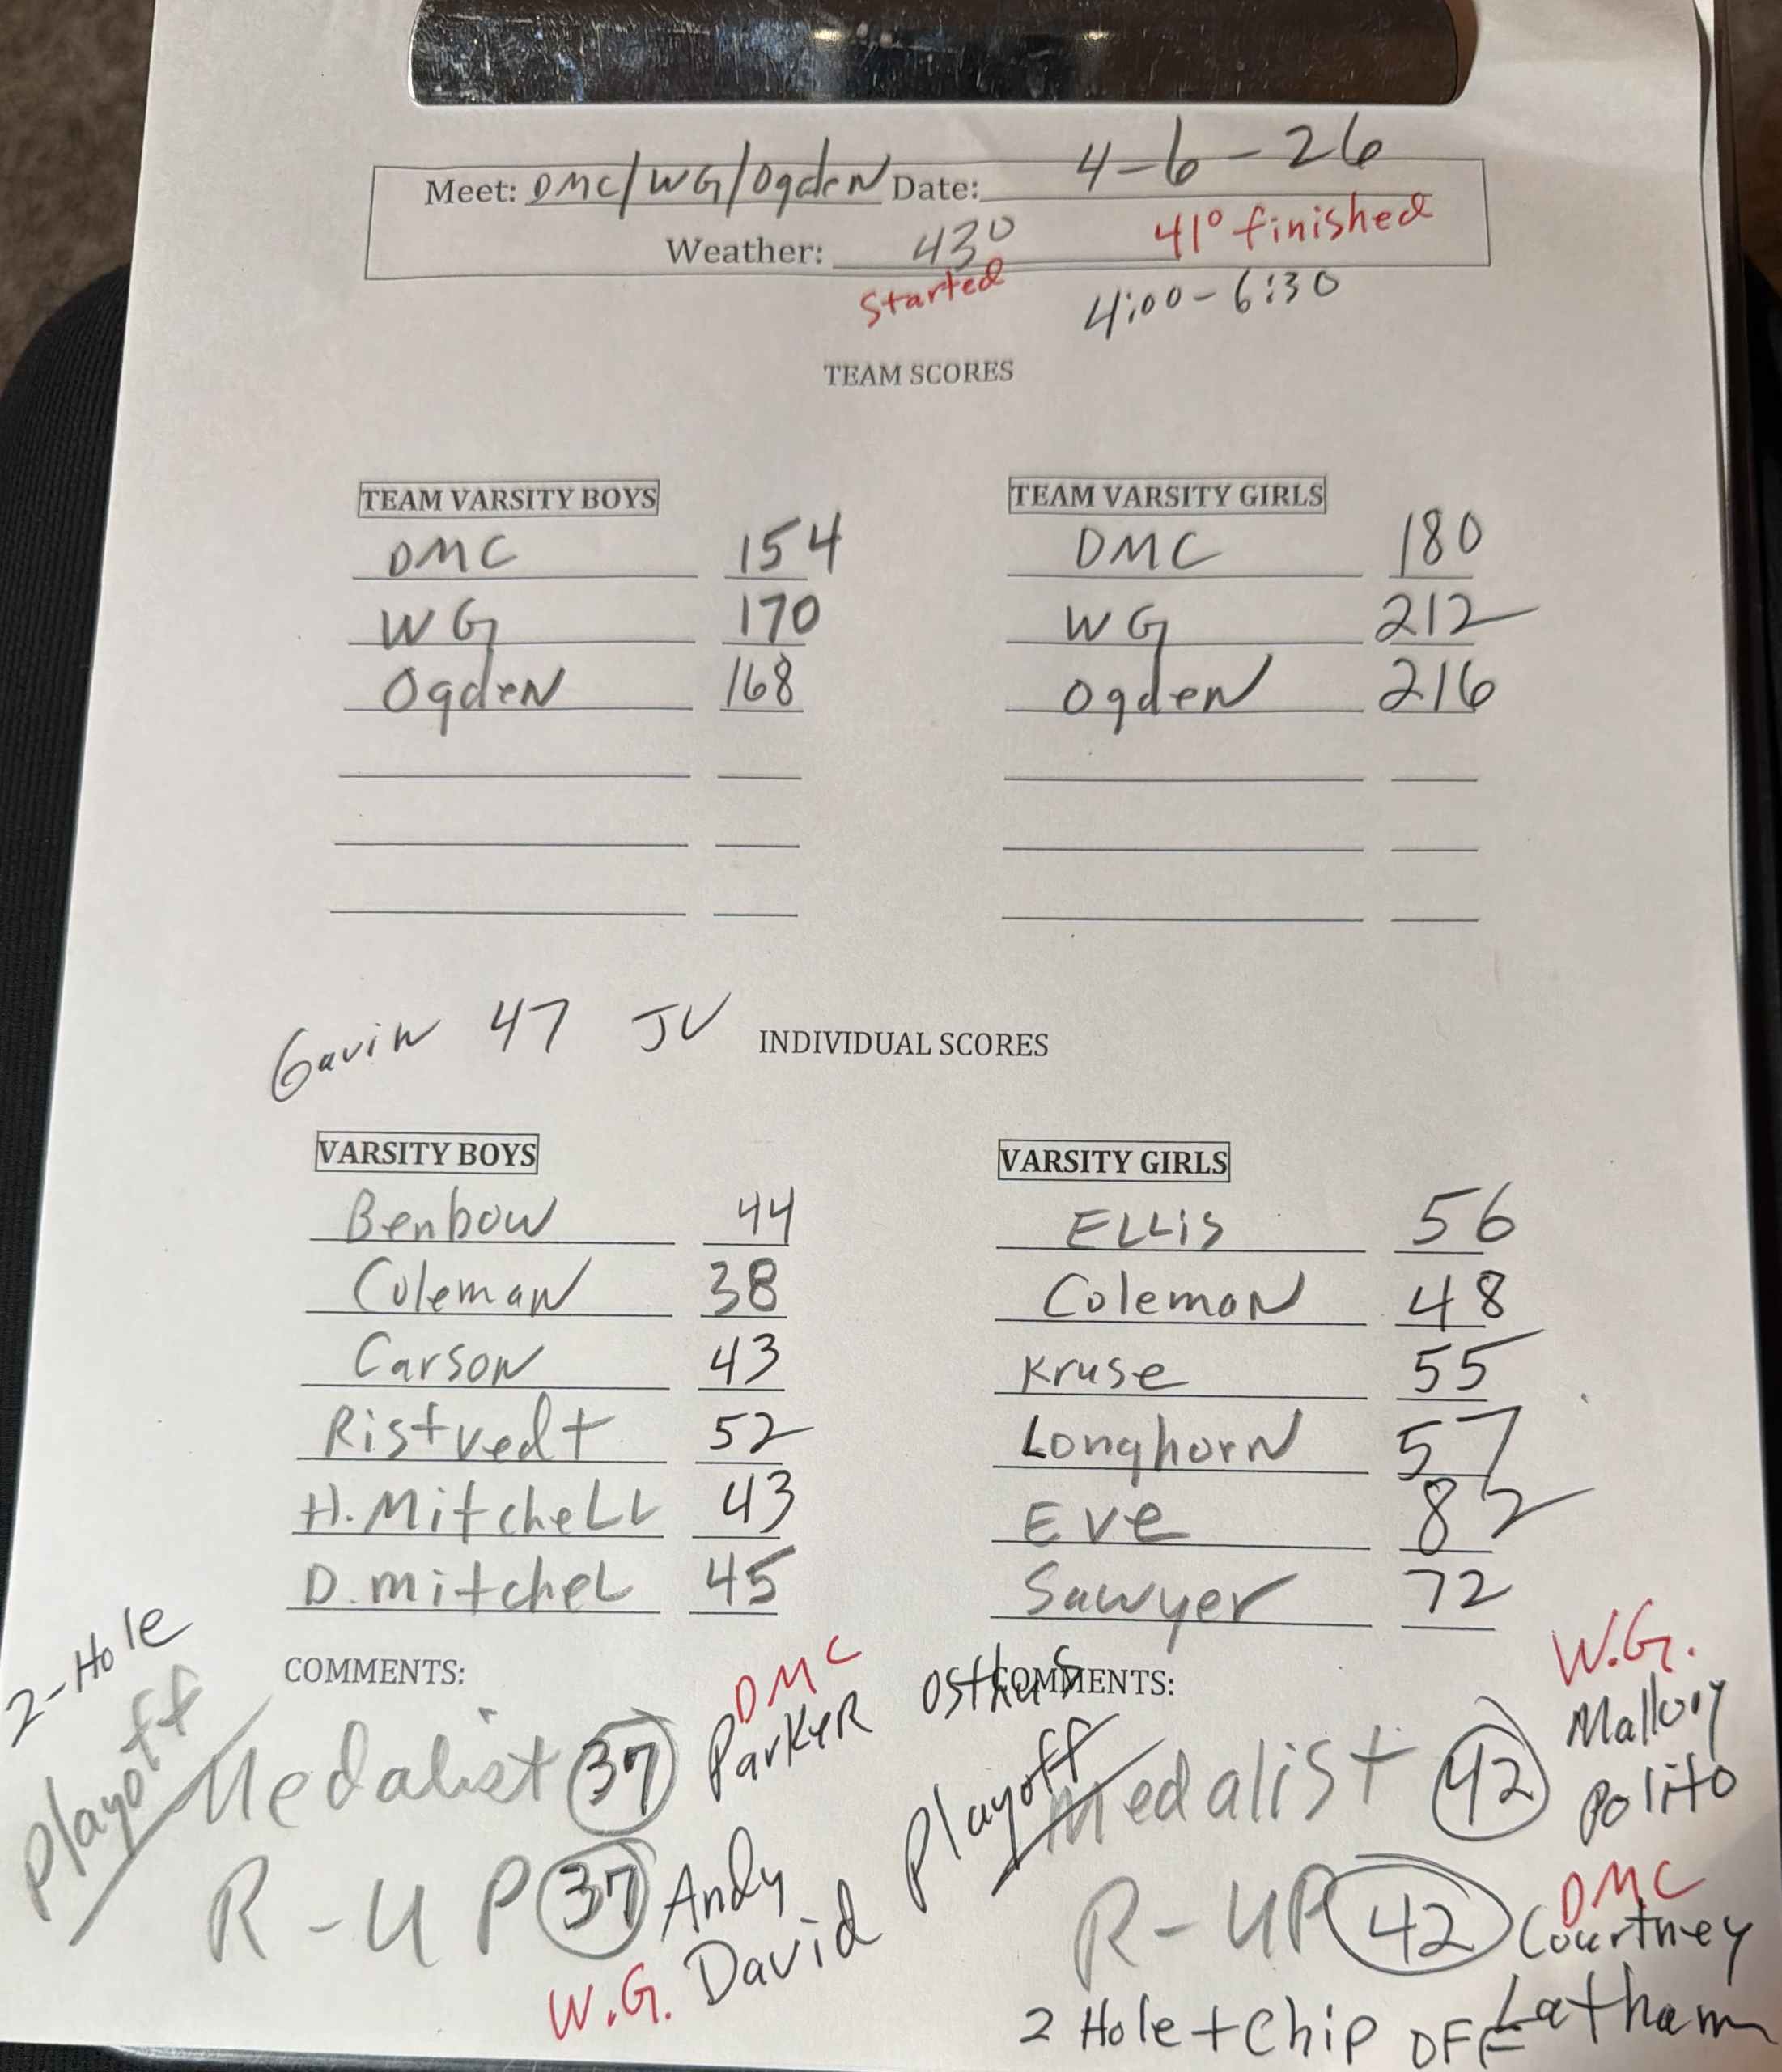 Meet: DMC/WG/Ogden Date: 4-6-26
Weather: 43° 41° finished
Started 4:00-6:30
TEAM SCORES
TEAM VARSITY BOYS
DMC 154
WG 170
Ogden 168
TEAM VARSITY GIRLS
DMC 180
WG 212
Ogden 216
Gavin 47 JV
INDIVIDUAL SCORES
VARSITY BOYS
Benbow 44
Coleman 38
Carson 43
Ristvedt 52
H. Mitchell 43
D. mitchel 45
VARSITY GIRLS
ELLis 56
Coleman 48
Kruse 55
Longhorn 57
Eve 82
Sawyer 72
COMMENTS:
2-Hole
Playoff
Medalist 37 DMC Parker Osthus
R-UP 37 Andy David
W.G.
COMMENTS:
Playoff
Medalist 42 W.G. Mallory Polito
R-UP 42 DMC Courtney Latham
2 Hole + Chip OFF